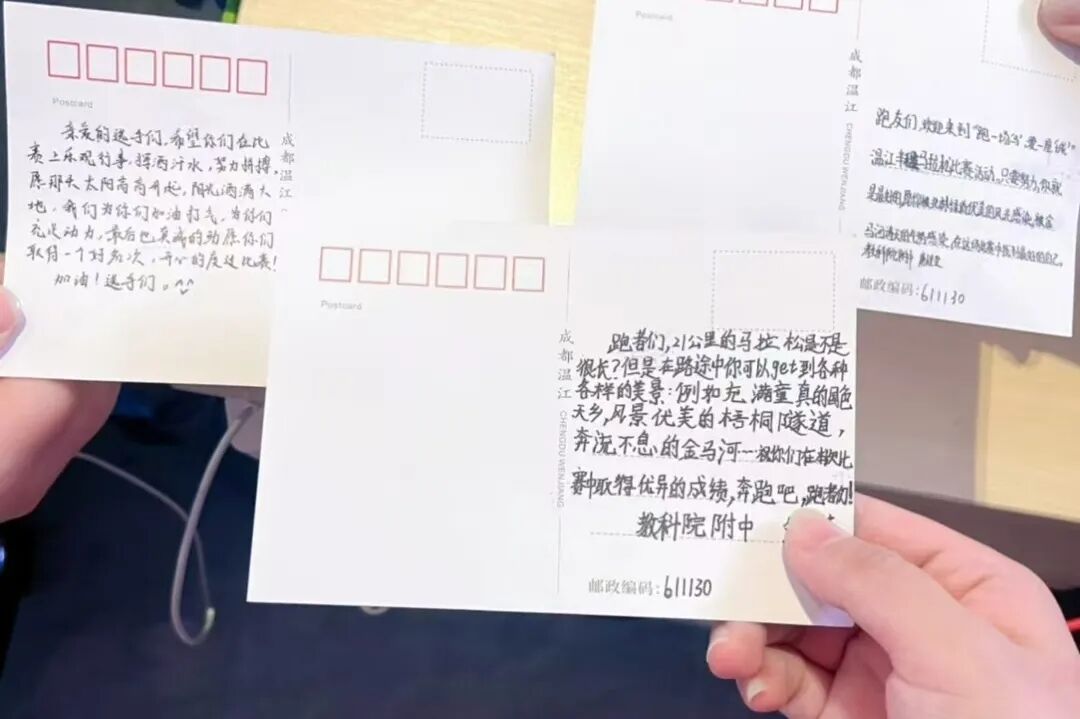 Postcard
亲爱的选手们,希望你们在比
赛上乐观行事,挥洒汗水,努力拼搏,
愿那天太阳高高升起,阳光洒满大
地,我们为你们加油打气,为你们
充足动力,最后也真诚的祝愿你们
取得一个好名次,开心的度过比赛!
加油!选手们。^^
成都温江
Postcard
成都温江
CHENGDU WENJIANG
跑友们,欢迎来到“跑一场马 爱一座城”
温江半程马拉松比赛活动,只要努力,你就
是最好的,
教科院附中
邮政编码:611130
Postcard
成都温江
CHENGDU WENJIANG
跑者们,21公里的马拉松是不是
很长?但是在路途中你可以get到各种
各样的美景:例如充满童真的国色
天乡,风景优美的梧桐隧道,
奔流不息的金马河……祝你们在本次比
赛中取得优异的成绩,奔跑吧,跑者们!
教科院附中
邮政编码:611130